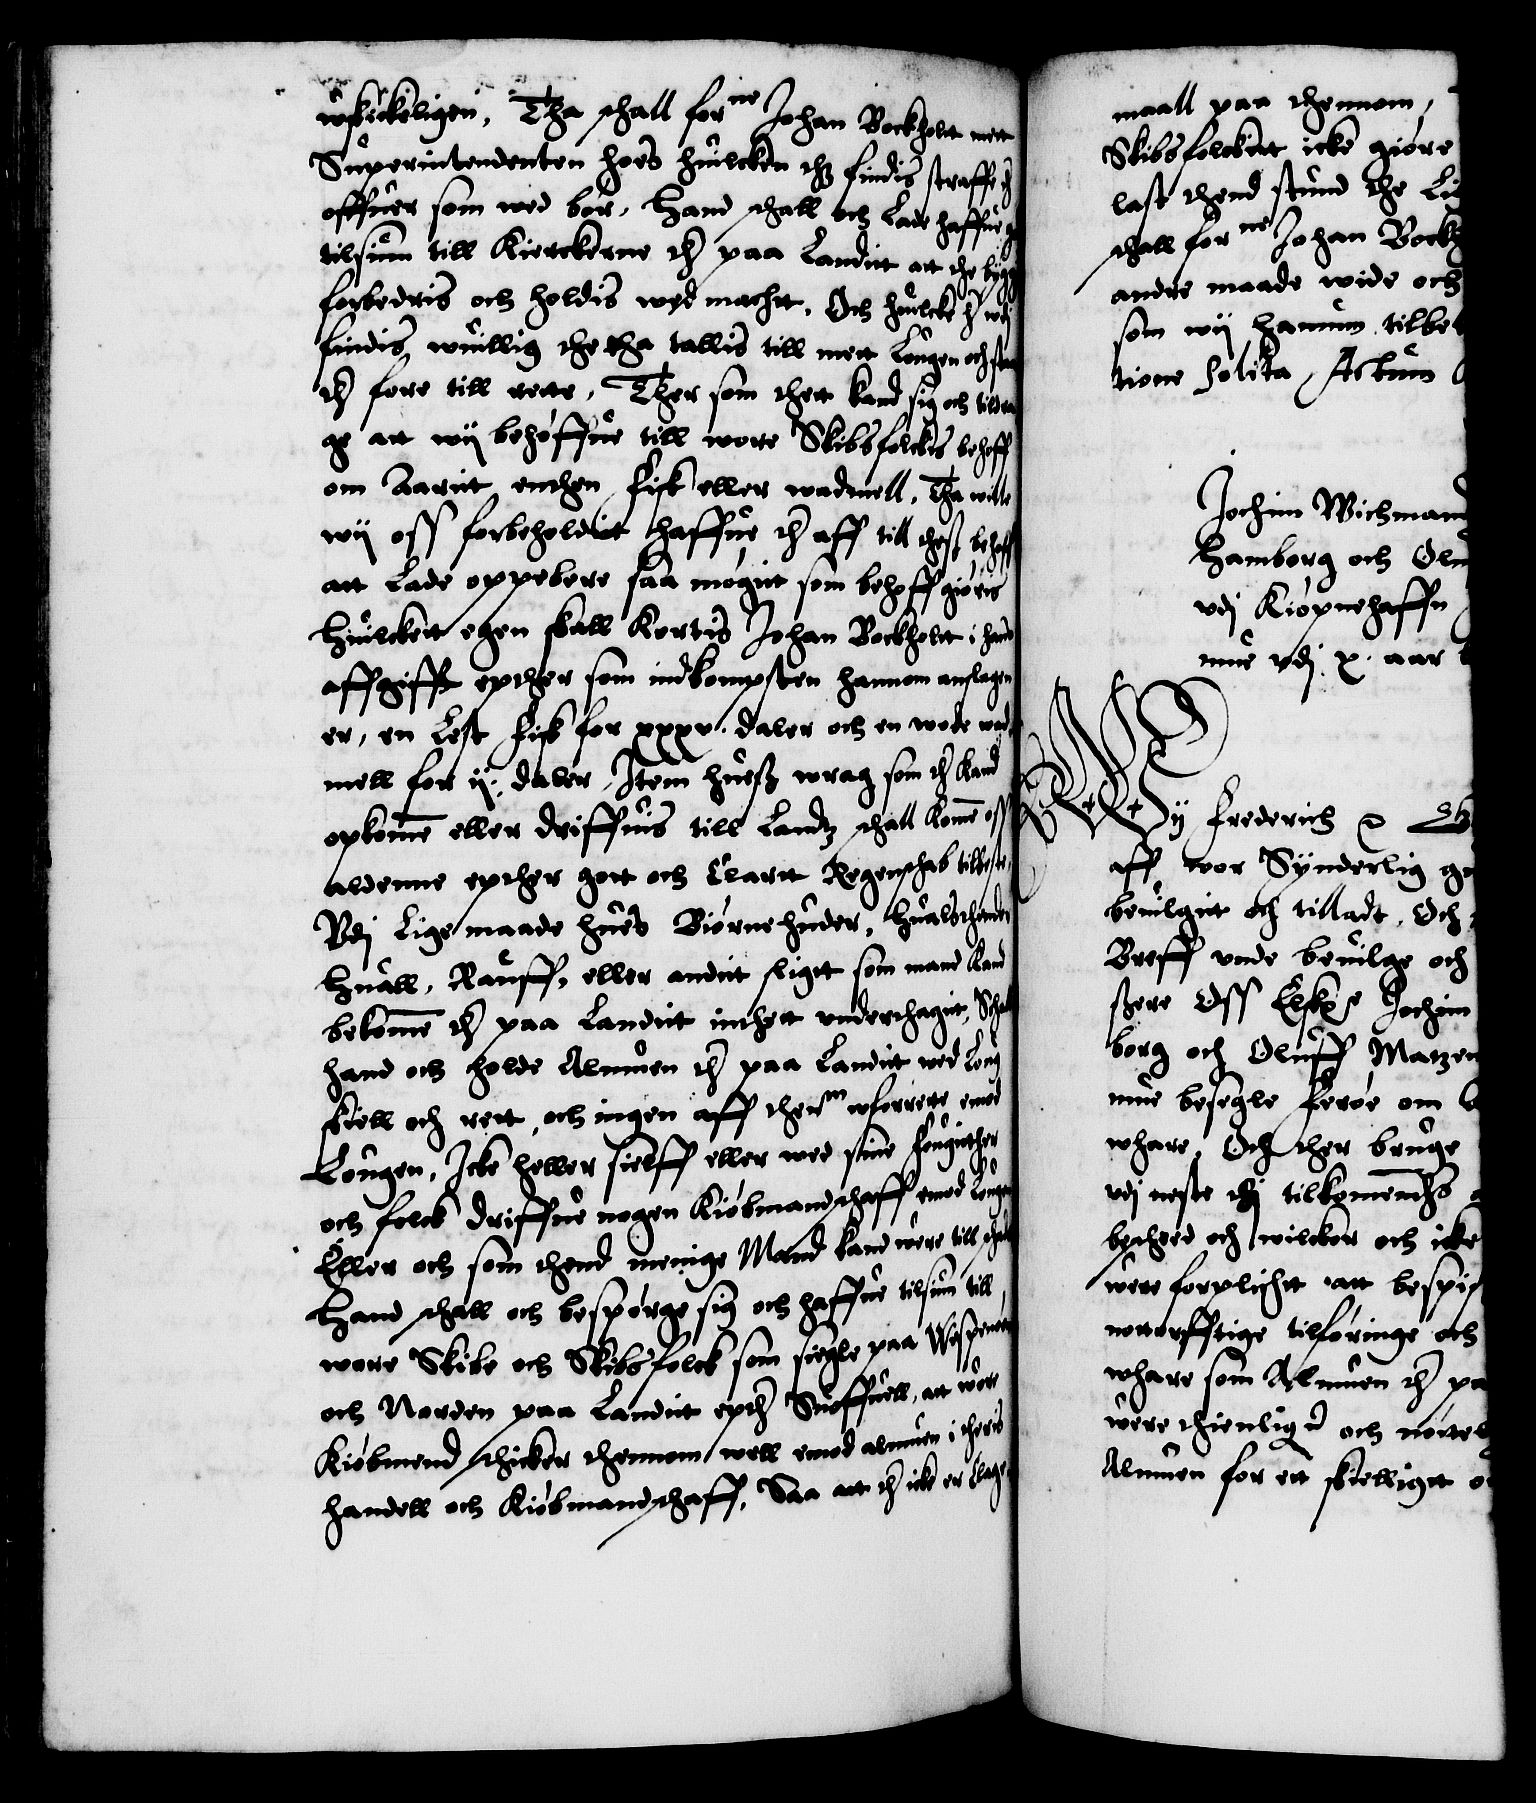 wskickeligen, Tha schall forne Johan Bockholt mett
Superintendenten hoes huilcken thz findis straffe ther
offuer som wed bør, Hand schall och Lade haffue
tilsiun till Kierckerne ther paa Landit att the bygg
forbedris och holdis wed machtt, Och huilcke ther wdj
findis wuillig the tha tallis till mett Lougen och staa
ther fore till rette, Ther som thett kand sig och tildra
ge att wij behøffue till wore Skibsfolckis behoff
om Aarit enthen fisk eller wadmell, Tha wille
wij oss forbeholdit haffue ther aff till thess behoff
att Lade oppebere saa mögit som behoff giøris
Huilckett igen skall Kortis Johan Bockholt i hans
affgifft epther som indkompsten hannom anslagen
er, en Lest fisk for xxxv daler och en wode wad
mell for ij daler, Item huess wrag som ther kand
opkomme eller driffuis till Landtz schall komme oss
aldenne epther gott och Clartt Regenschab tilbeste,
Vdj Lige maade hues Biørnehuder, Hualstender
Huall, Rauff, eller andit sligtt som mand kand
bekomme ther paa Landit inthett undertagit, Schall
hand och holde Almuen ther paa Landit wed Loug
skiell och rett, och ingen aff thersm wforrette emod
Lougen, Icke heller sielff eller med sine fougither
och folck driffue nogen Kiøbmandschaff emod Lougen
Eller och som thend menige Mand kand were till schade
Hand schall och bespørge sig och haffue tilsiun till
wore Skibe och Skibsfolck som siegle paa Wespenøen
och Norden paa Landit epther Suoffuell, att wore
Kiøbmend schicker thennom well emod almuen i theris
handell och Kiøbmandschaff, Saa att ther icke er Klage
maall paa thennom,
Skibsfolckitt icke giøre
last thend stund the Li
schall forne Johan Bock
andre maade wide och
som wij hannum tilbe
tione solita, Actum
Jochim Wichmand
Hamborg och Olu
vdj Kiøpnehaffn
mue vdj x aar
Wij Frederich
aff wor Synderlig g
beuilgit och tilladt, Och
Breff unde beuilge och
ßere Oss Elske Jochim
borg och Oluff Matzen
mue besegle Ferøe om
whare, Och ther bruge
vdj neste thj tilkommendes
besched och wilckor och icke
were forplicht att bespis
nøttørfftige tilføringe och
whare som Almuen ther pa
were thienlig och nøtte
Almuen for ett skielligtt